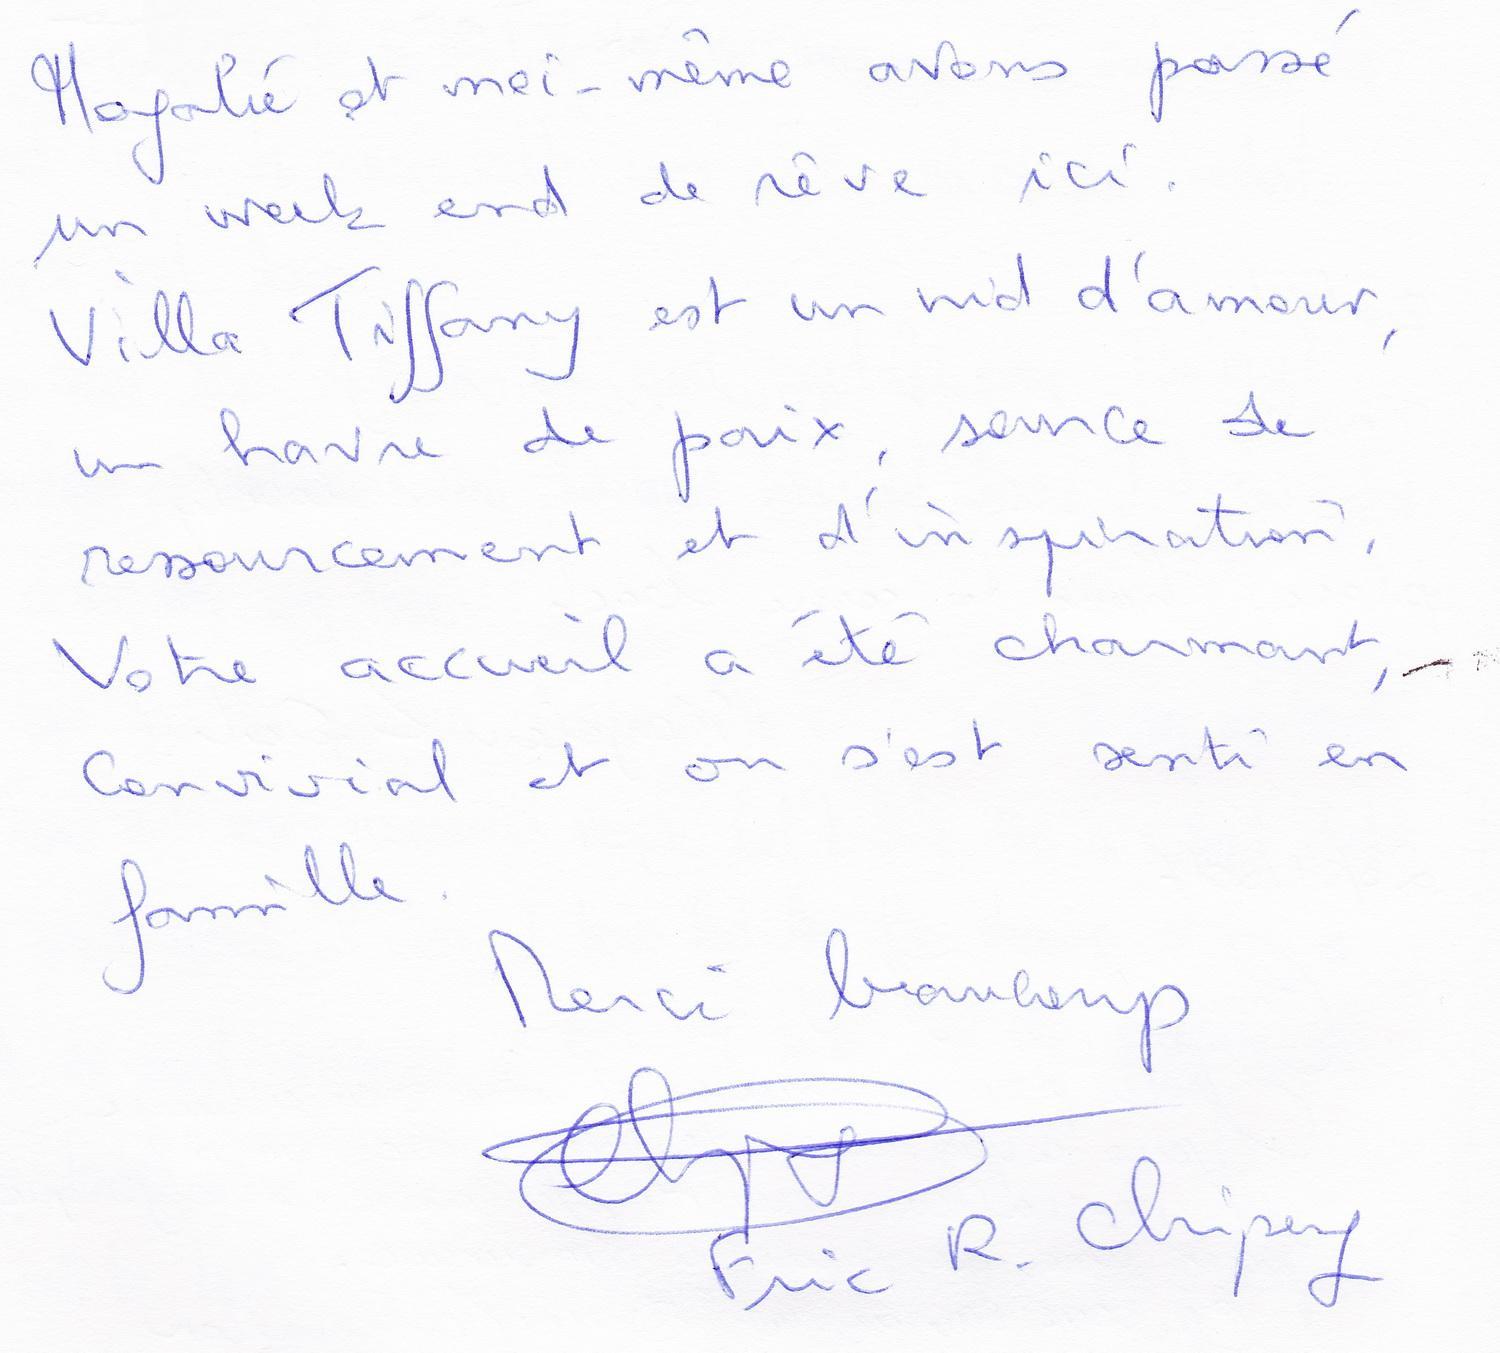 Magalie et moi-même avons passé
un week end de rêve ici.
Villa Tiffany est un nid d'amour,
un havre de paix, source de
ressourcement et d'inspiration.
Votre accueil a été charmant,
Convivial et on s'est senti en
famille.
Merci beaucoup
Eric R.